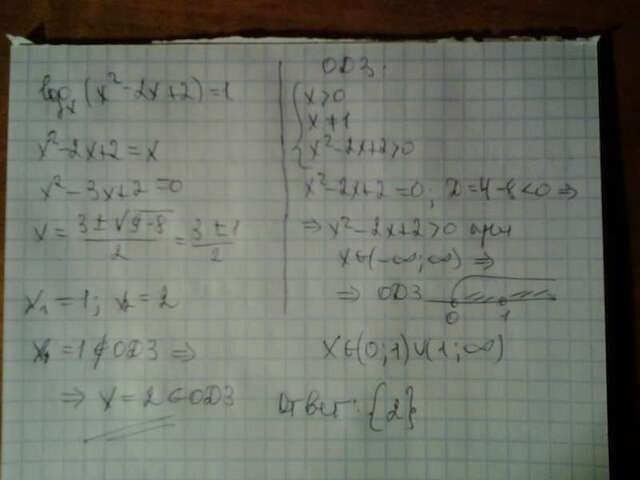 log_x (x² - 2x + 2) = 1
x² - 2x + 2 = x
x² - 3x + 2 = 0
x = (3 ± √(9-8))/2 = (3 ± 1)/2
x₁ = 1; x₂ = 2
x₁ = 1 ∉ ОДЗ ⇒
⇒ x = 2 ∈ ОДЗ
ОДЗ:
{ x > 0
x ≠ 1
x² - 2x + 2 > 0
x² - 2x + 2 = 0; D = 4 - 8 < 0 ⇒
⇒ x² - 2x + 2 > 0 при
x ∈ (-∞; ∞) ⇒
⇒ ОДЗ
0 1
x ∈ (0; 1) ∪ (1; ∞)
Ответ: {2}